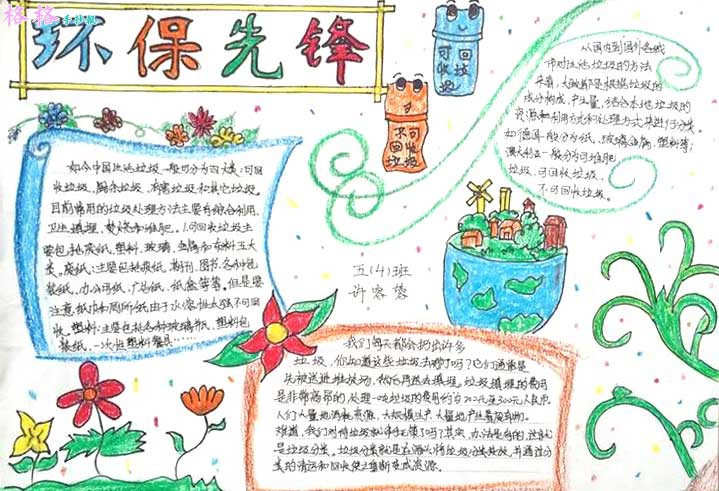 格格手抄报
环保先锋
可回收垃圾
不可回收垃圾
如今中国生活垃圾一般可分为四大类:可回
收垃圾、厨余垃圾、有害垃圾和其它垃圾。
目前常用的垃圾处理方法主要有综合利用、
卫生填埋、焚烧和堆肥。1.可回收垃圾主
要包括废纸、塑料、玻璃、金属和布料五大
类。废纸:主要包括报纸、期刊、图书、各种包
装纸、办公用纸、广告纸、纸盒等等。但是要
注意纸巾和厕所纸由于水溶性太强不可回
收。塑料:主要包括各种
塑料包
装纸、一次性塑料餐具……
从国内到国外各城
市对生活垃圾的方法
来看,大致都是根据垃圾的
成分构成、产生量,结合本地垃圾的
资源利用和处理方式来进行分类
如德国一般分为纸、玻璃、金属、塑料等;
澳大利亚一般分为可堆肥
垃圾,可回收垃圾,
不可回收垃圾。
五(4)班
许容
我们每天都会扔出许多
垃圾,你知道这些垃圾去哪了吗?它们通常是
先被送进堆放场,然后再送去填埋。垃圾填埋的费用
是非常高昂的,处理一吨垃圾的费用约为200元至300元人民币。
人们大量地消耗资源,大规模生产,大量地产生着废弃物。
难道,我们对待垃圾就束手无策了吗?其实,办法是有的,这就
是垃圾分类。垃圾分类就是在源头将垃圾分类投放,并通过分
类的清运和回收使之重新变成资源。